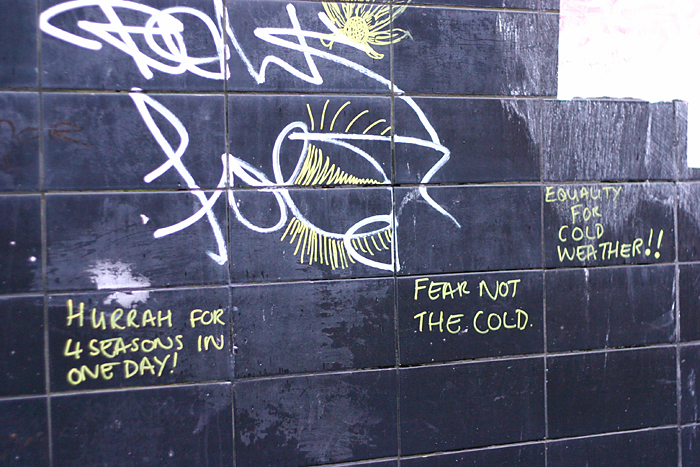 EQUALITY
FOR
COLD
WEATHER!!
FEAR NOT
THE COLD.
HURRAH FOR
4 SEASONS IN
ONE DAY!